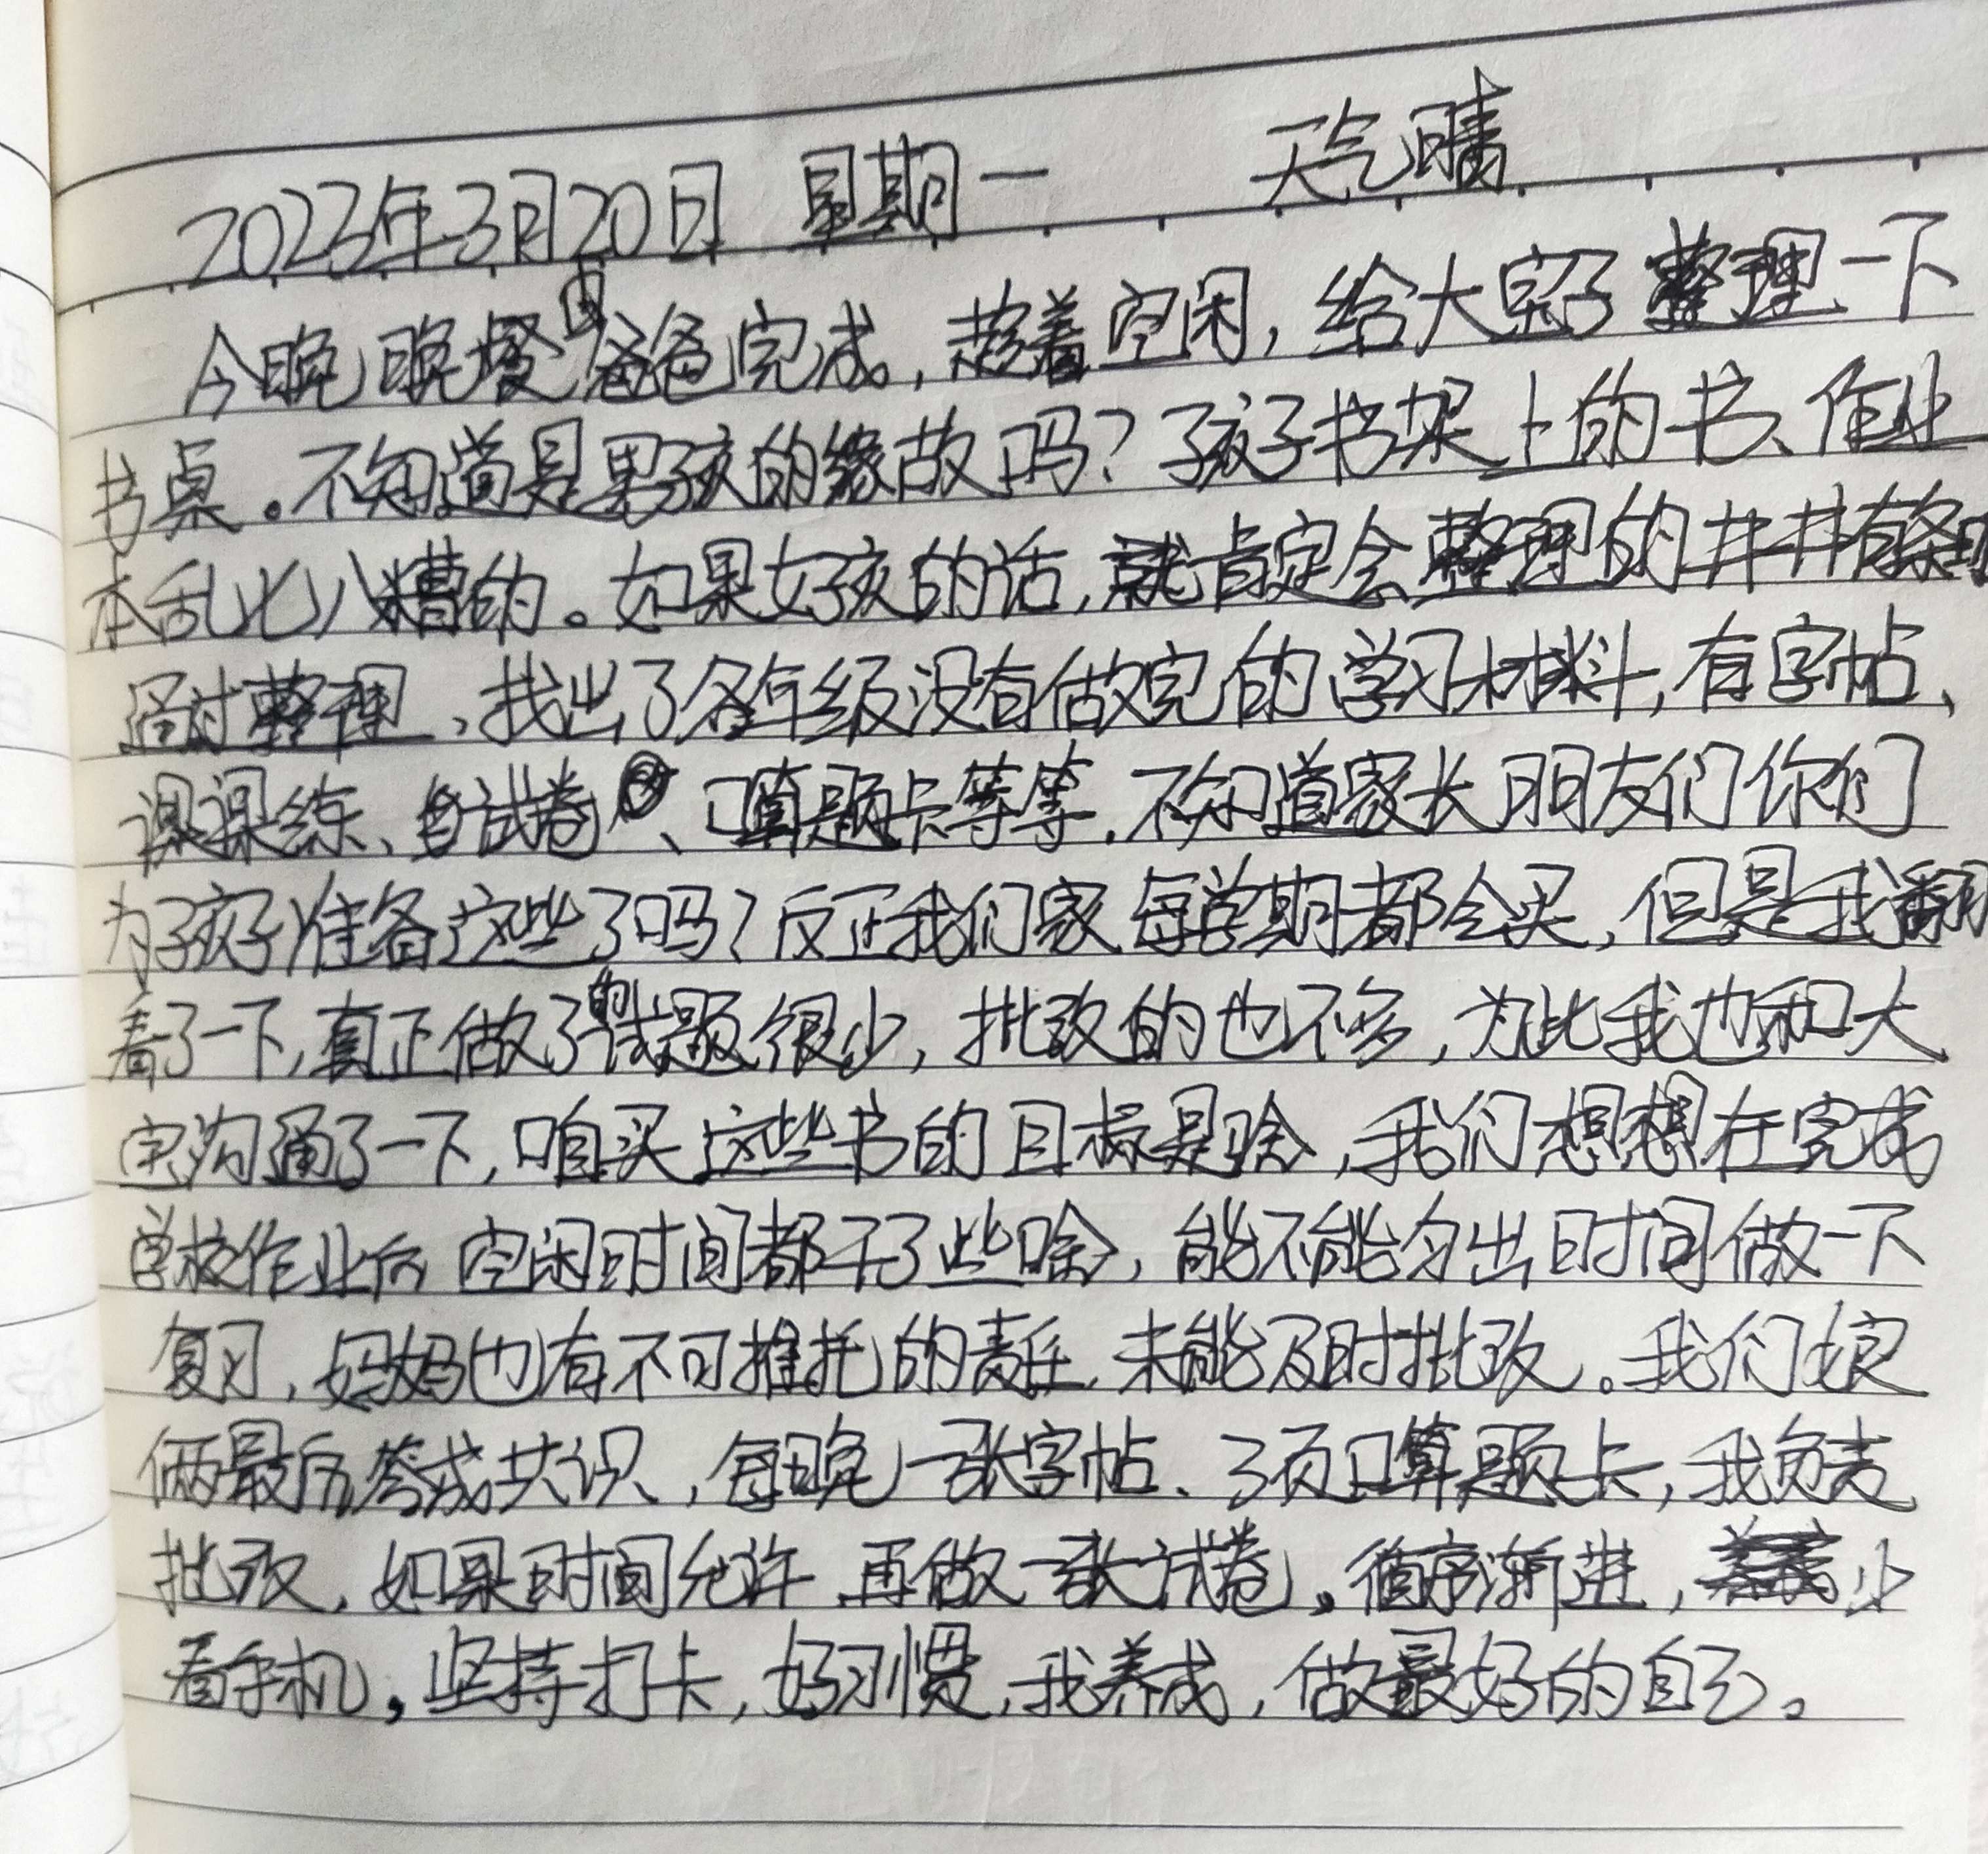 2023年3月20日 星期一 天气晴
今晚晚餐由爸爸完成,趁着空闲,给大宝了整理一下
书桌。不知道是男孩的缘故吗?孩子书架上的书、作业
本乱七八糟的。如果女孩的话,就肯定会整理的井井有条
通过整理,找出了各年级没有做完的学习材料,有字帖、
课课练、试卷、口算题卡等等.不知道家长朋友们你们
为孩子准备这些了吗?反正我们家每学期都会买,但是我翻
看了一下,真正做了的试题很少,批改的也不多,为此我也和大
宝沟通了一下,咱买这些书的目标是啥,我们想想在完成
学校作业后 空闲时间都干了些啥,能不能匀出时间做一下
复习,妈妈也有不可推托的责任,未能及时批改。我们娘
俩最后答成共识,每晚一张字帖、3页口算题卡,我负责
批改,如果时间允许 再做一张试卷。循序渐进,少
看手机,坚持打卡,好习惯,我养成,做最好的自己。